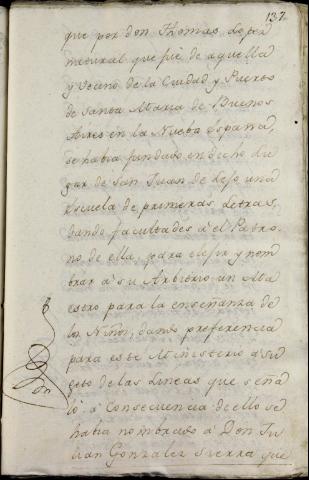 137
que por don Thomas Lopez
natural que fué de aquella
y Vecino de la Ciudad y Puerto
de Santa Maria de Buenos
Aires en la Nueba España,
se habia fundado en dicho Lu
gar de San Juan de una
Escuela de primeras Letras,
dando facultades á el Patro
no de ella, para elejir y nom
brar á su Arbitrio un Ma
estro para la enseñanza de
los Niños, dando preferencia
para este Ministerio á Su
geto de las Lineas que seña
ló á Consecuencia de ello se
habia nombrado á Don Ju
lian Gonzalez Sierra que